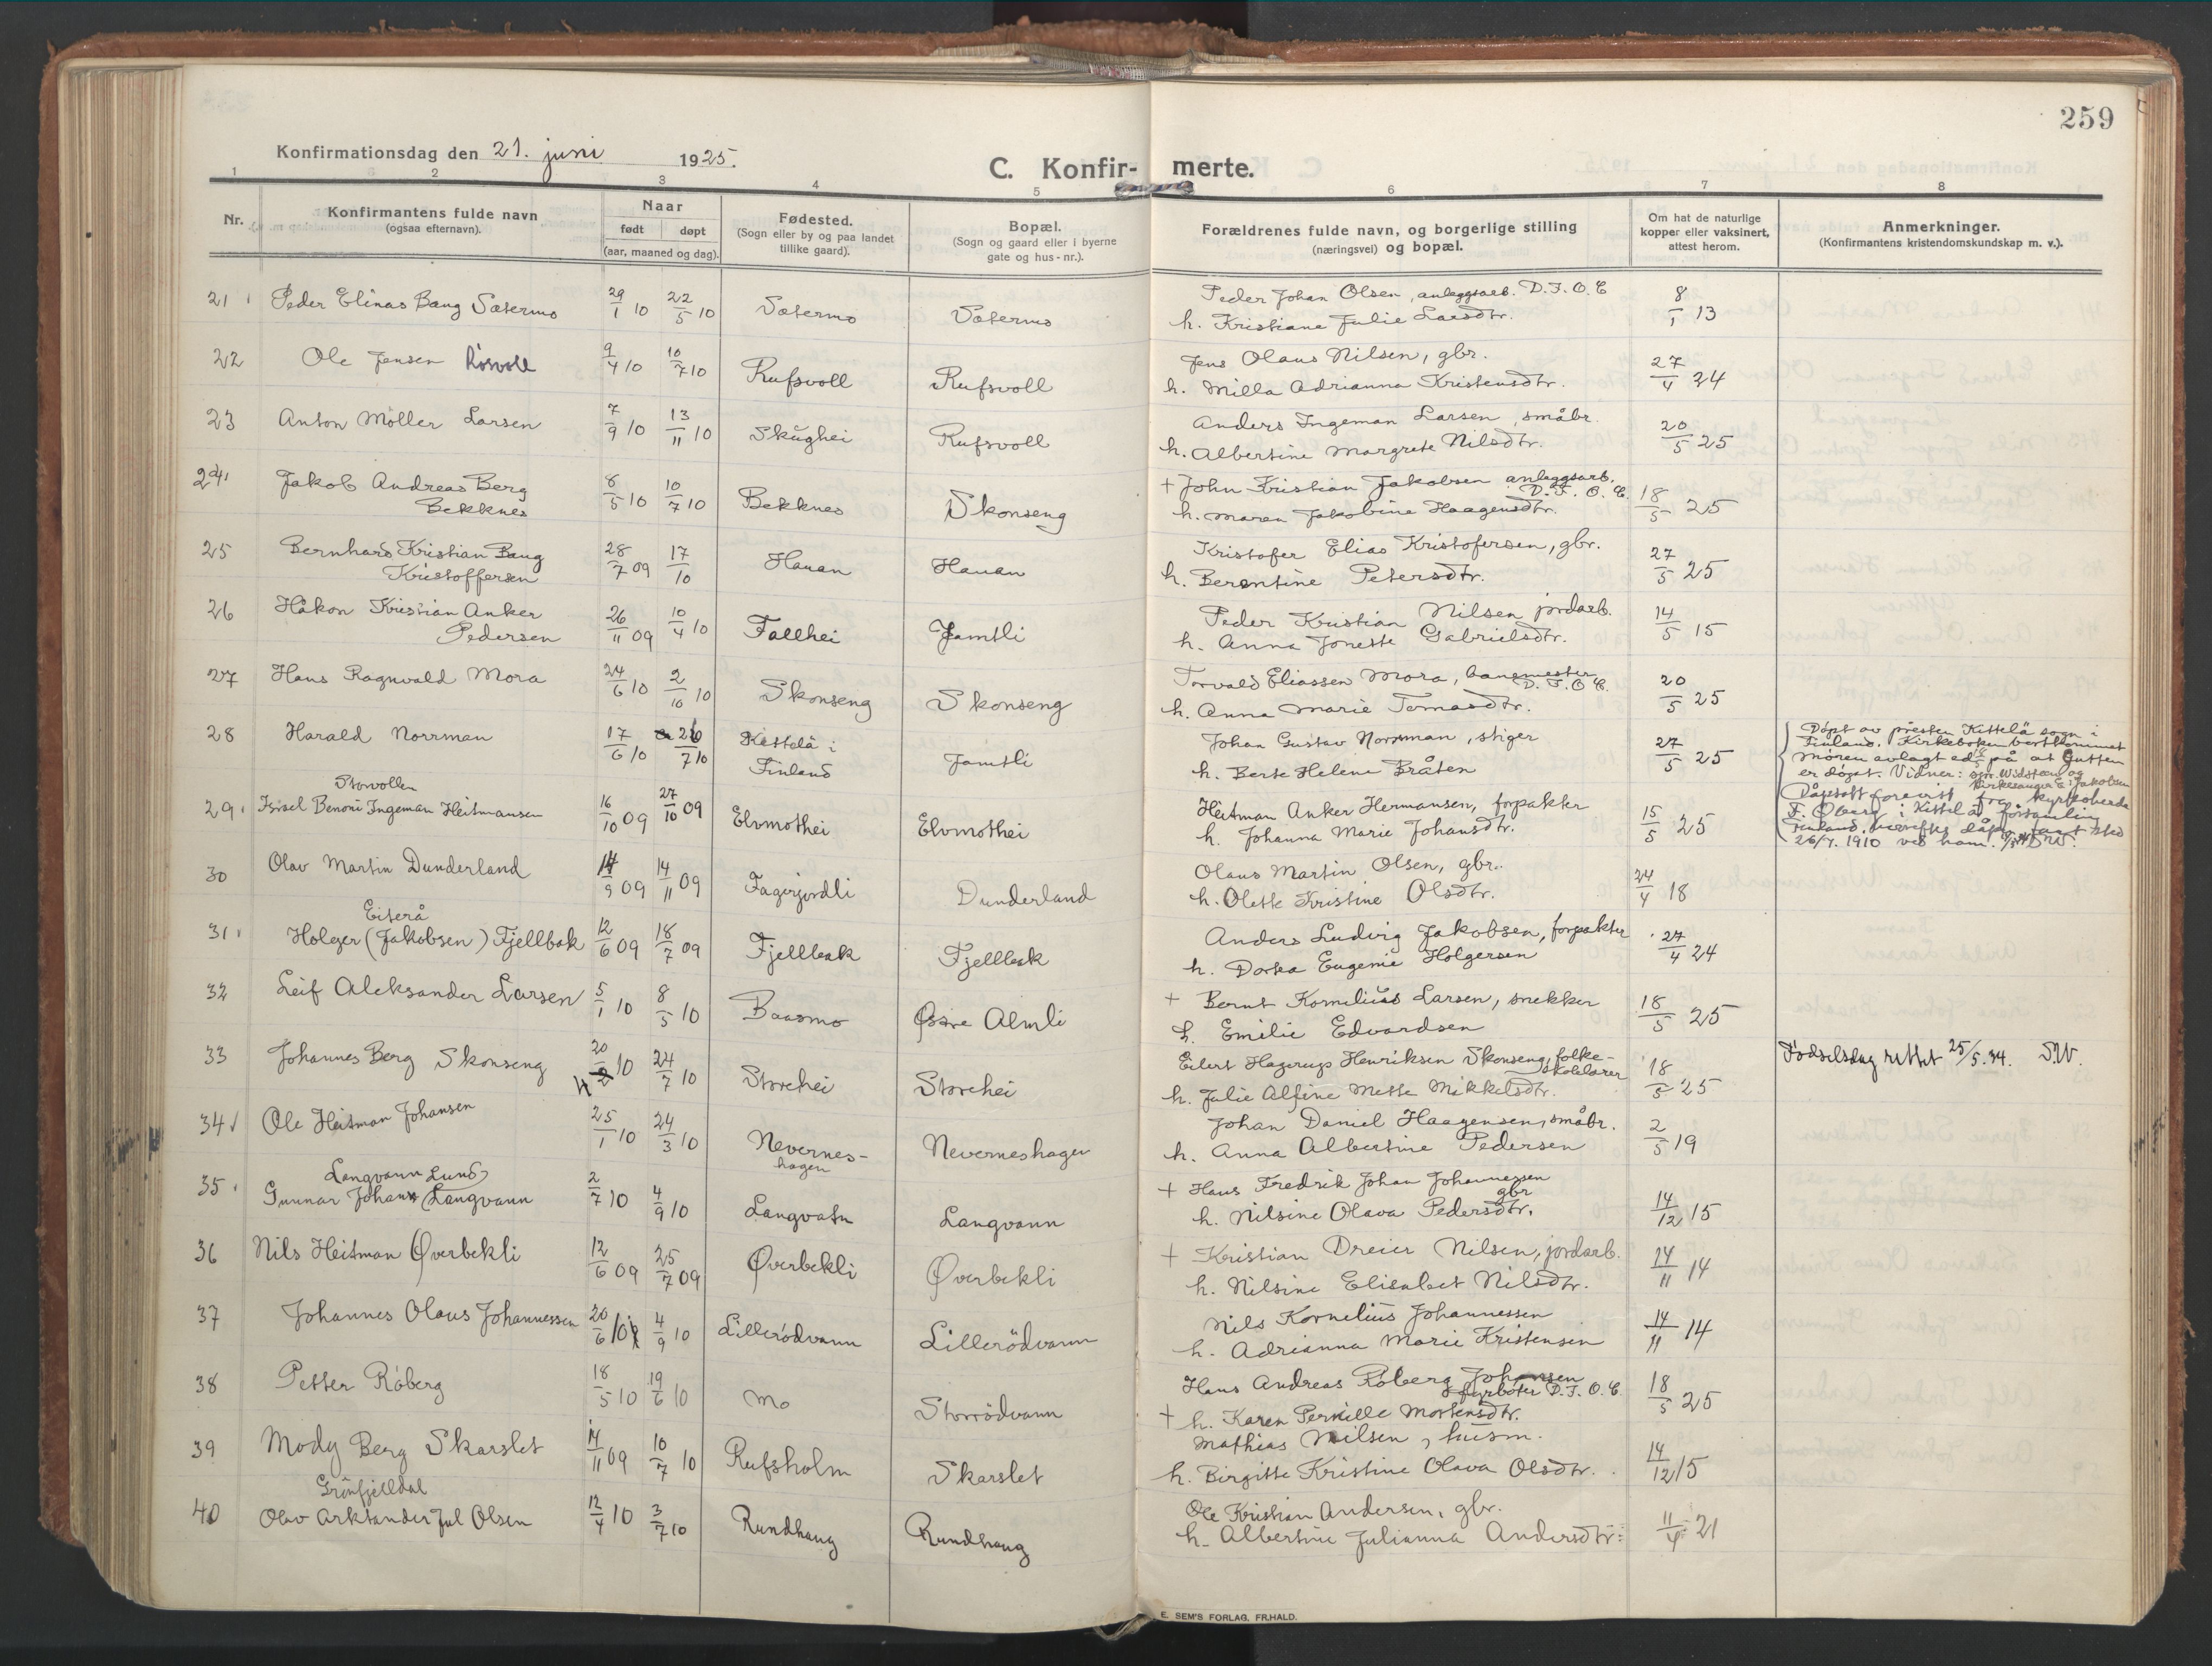 259
Konfirmationsdag den 21. juni 1925.
C. Konfir- merte.
1 2 3 4 5 6 7 8
Nr.
Konfirmantens fulde navn
(ogsaa efternavn).
Naar
født døpt
(aar, maaned og dag).
Fødested.
(Sogn eller by og paa landet
tillike gaard).
Bopæl.
(Sogn og gaard eller i byerne
gate og hus-nr.).
Forældrenes fulde navn, og borgerlige stilling
(næringsvei) og bopæl.
Om hat de naturlige
kopper eller vaksinert,
attest herom.
Anmerkninger.
(Konfirmantens kristendomskundskap m. v.).
21 Peder Elinas Bang Sætermo 29/1 10 22/5 10 Sætermo Sætermo
Peder Johan Olsen, anleggsarb. D.J.O.C
h. Kristiane Julie Larsdtr. 8/1 13
22 Ole Jensen Rösvoll 9/4 10 10/7 10 Rufsvoll Rufsvoll
Jens Olaus Nilsen, gbr.
h. Milla Adrianna Kristensdtr. 27/4 24
23 Anton Möller Larsen 7/9 10 13/11 10 Skughei Rufsvoll
Anders Ingeman Larsen, småbr.
h. Albertine Margrete Nilsdtr. 20/5 25
24 Jakob Andreas Berg
Bekknes 8/5 10 10/7 10 Bekknes Skonseng
+ John Kristian Jakobsen anleggsarb.
D.J.O.C.
h. Maren Jakobine Haagensdtr. 18/5 25
25 Bernhard Kristian Baug
Kristoffersen 28/7 09 17/10 Hauan Hauan
Kristofer Elias Kristofersen, gbr.
h. Berentine Petersdtr. 27/5 25
26 Håkon Kristian Anker
Pedersen 26/11 09 10/4 10 Fallhei Jamtli
Peder Kristian Nilsen jordarb.
h. Anna Jonette Gabrielsdtr. 14/5 15
27 Hans Ragnvald Mora 24/6 10 2/10 10 Skonseng Skonseng
Torvald Eliassen Mora, banemester
D.J.O.C.
h. Anna Marie Tomasdtr. 20/5 25
28 Harald Norrman 17/6 10 26/7 10 Kittelä i
Finland Jamtli
Johan Gustav Norrman, stiger
h. Berte Helene Bråten 27/5 25
Döpt av presten Kittelä sogn i
Finland. Kirkeboken bortkommet
Moren avlagt ed på at Gutten
er döpt. Vidner:
Kirkesanger Jakobsen
Dåpsatt forevist fra kyrkoherde
F. Öberg i Kittelä församling
Finland, hvorefter dåpen fant sted
26/7. 1910 ved ham.
29 Storvollen
Isisel Benoni Ingeman Heitmansen 16/10 09 27/10 09 Elvmothei Elvmothei
Heitman Anker Hermansen, forpakter
h. Johanna Marie Johansdtr. 15/5 25
30 Olav Martin Dunderland 14/9 09 14/11 09 Fagerjordli Dunderland
Olaus Martin Olsen, gbr.
h. Olette Kristine Olsdtr. 24/4 18
31 Eiterå
Holger (Jakobsen) Fjellbak 12/6 09 18/7 09 Fjellbak Fjellbak
Anders Ludvig Jakobsen, forpakter
h. Dorka Eugenie Holgersen 27/4 24
32 Leif Aleksander Larsen 5/1 10 8/5 10 Baasmo Østre Almli
+ Bernt Kornelius Larsen, snekker
h. Emilie Edvardsen 18/5 25
33 Johannes Berg Skonseng 20/4 10 24/7 10 Storehei Storehei
Eilert Hagerup Henriksen Skonseng, folke-
skolelærer
h. Julie Alfine Mette Mikkelsdtr. 18/5 25
Fødselsdag rettet 25/5.34. S.W.
34 Ole Heitman Johansen 25/1 10 24/3 10 Nevernes-
hagen Neverneshagen
Johan Daniel Haagensen, småbr.
h. Anna Albertine Pedersen 2/5 19
35 Langvann Lund
Gunnar Johan (Langvann 2/7 10 4/9 10 Langvatn Langvann
+ Hans Fredrik Johan Johannessen
gbr
h. Nilsine Olava Pedersdtr. 14/12 15
36 Nils Heitman Øverbekli 12/6 09 25/7 09 Øverbekli Øverbekli
+ Kristian Dreier Nilsen, jordarb.
h. Nilsine Elisabet Nilsdtr. 14/11 14
37 Johannes Olaus Johannessen 20/6 10 4/9 10 Lillerödvann Lillerödvann
Nils Kornelius Johannessen
h. Adrianna Marie Kristensen 14/11 14
38 Petter Röberg 18/5 10 19/6 10 Mo Storrödvann
Hans Andreas Röberg Johansen
fyrböter D.J.O.C.
+ h. Karen Pernille Mortensdtr. 18/5 25
39 Mody Berg Skarslet 14/11 09 10/7 10 Rufsholm Skarslet
Mathias Nilsen, husm.
h. Birgitte Kristine Olava Olsdtr. 14/12 15
40 Grönfjelldal
Olav Arktander Jul Olsen 12/4 10 3/7 10 Rundhaug Rundhaug
Ole Kristian Andersen, gbr.
h. Albertine Julianna Andersdtr. 11/4 21
E. SEM'S FORLAG, FR.HALD.